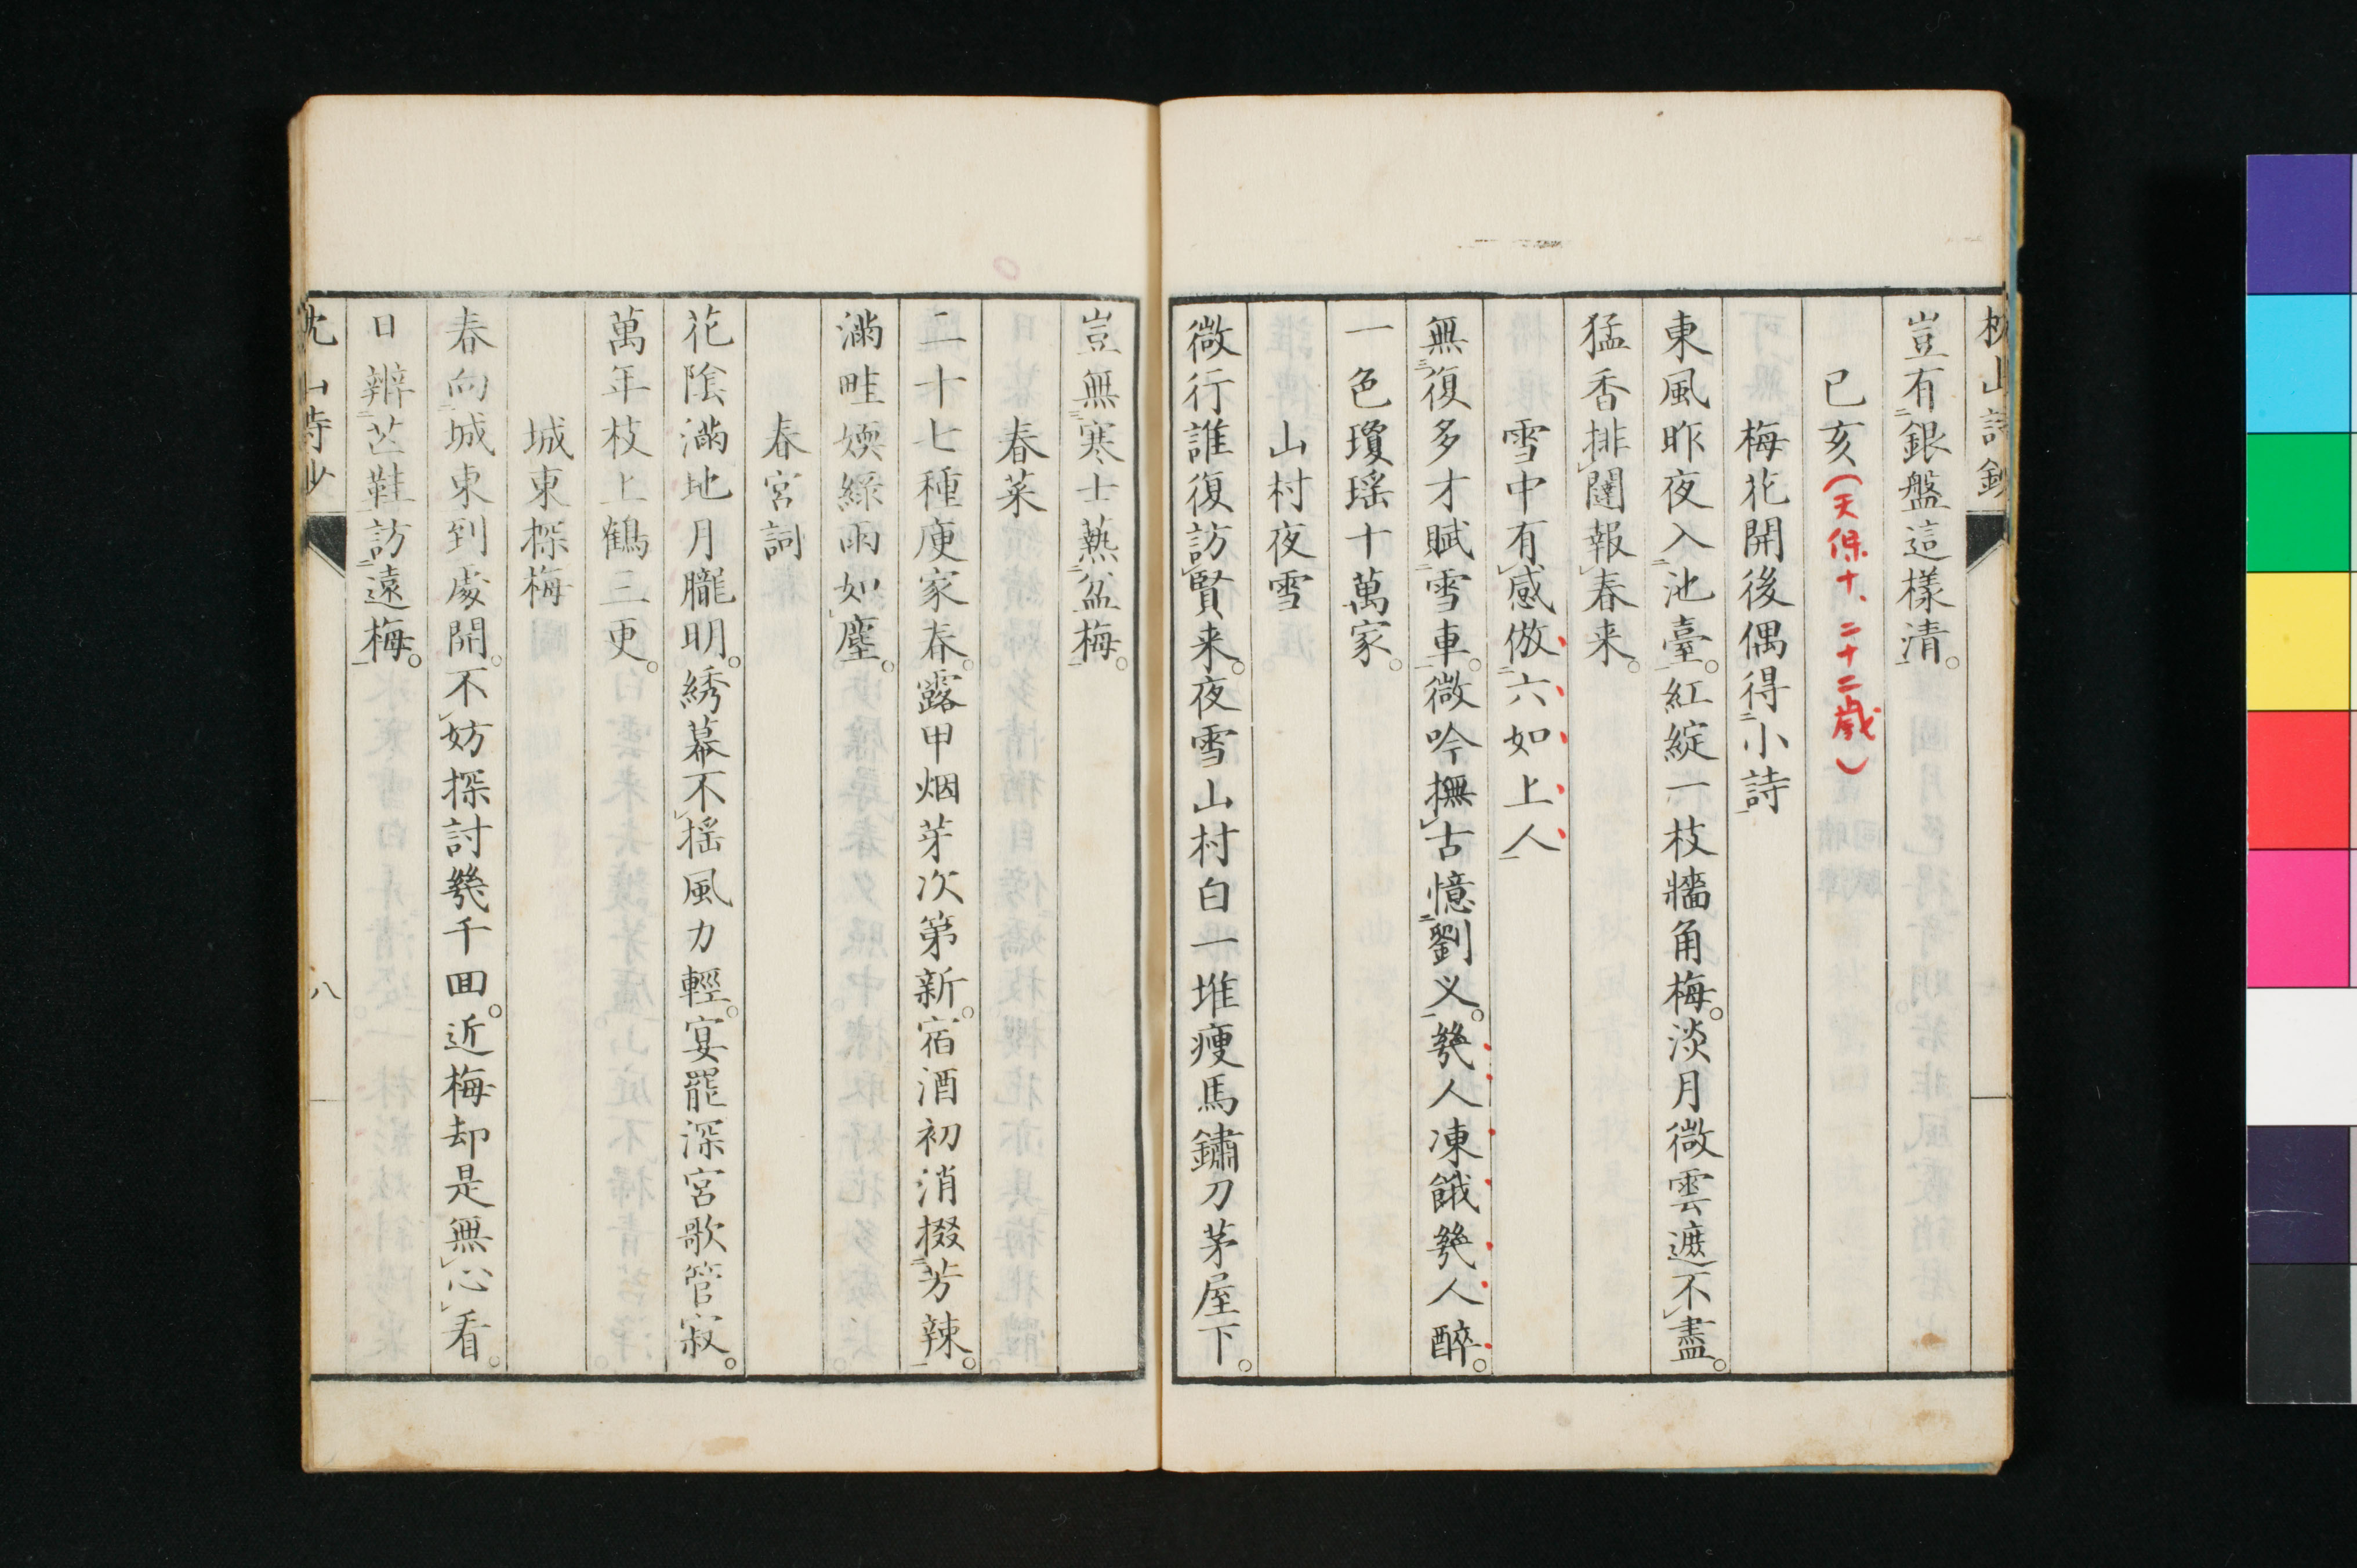 枕山詩鈔
豈有銀盤這樣清。
已亥(天保十、二十二歳)
梅花開後偶得小詩
東風昨夜入池臺。紅綻一枝牆角梅。淡月微雲遮不盡。
猛香排闥報春来。
雪中有感倣六如上人
無復多才賦雪車。微吟撫古憶劉义。幾人凍餓幾人醉。
一色瓊瑶十萬家。
山村夜雪
微行誰復訪賢来。夜雪山村白一堆瘦馬鏽刀茅屋下。
豈無寒士爇盆梅。
春菜
二十七種庾家春。露甲烟芽次第新。宿酒初消掇芳辣。
滿畦媆綠雨如塵。
春宮詞
花陰滿地月朧明。綉幕不揺風力輕。宴罷深宮歌管寂。
萬年枝上鶴三更。
城東探梅
春向城東到處開。不妨探討幾千回。近梅却是無心看。
日辨芒鞋訪遠梅。
枕山詩鈔
八